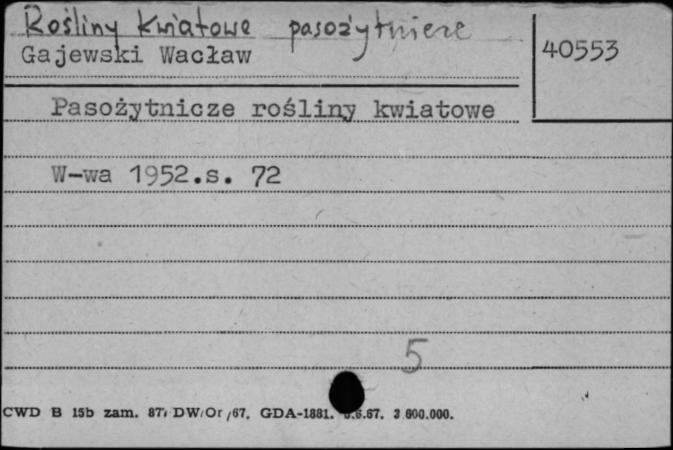 Rośliny kwiatowe pasożytnicze
Gajewski Wacław
40553
Pasożytnicze rośliny kwiatowe
W-wa 1952.s. 72
5
CWD B 15b zam. 87, DW/Or/67. GDA-1881. .6.67. 3.600.000.